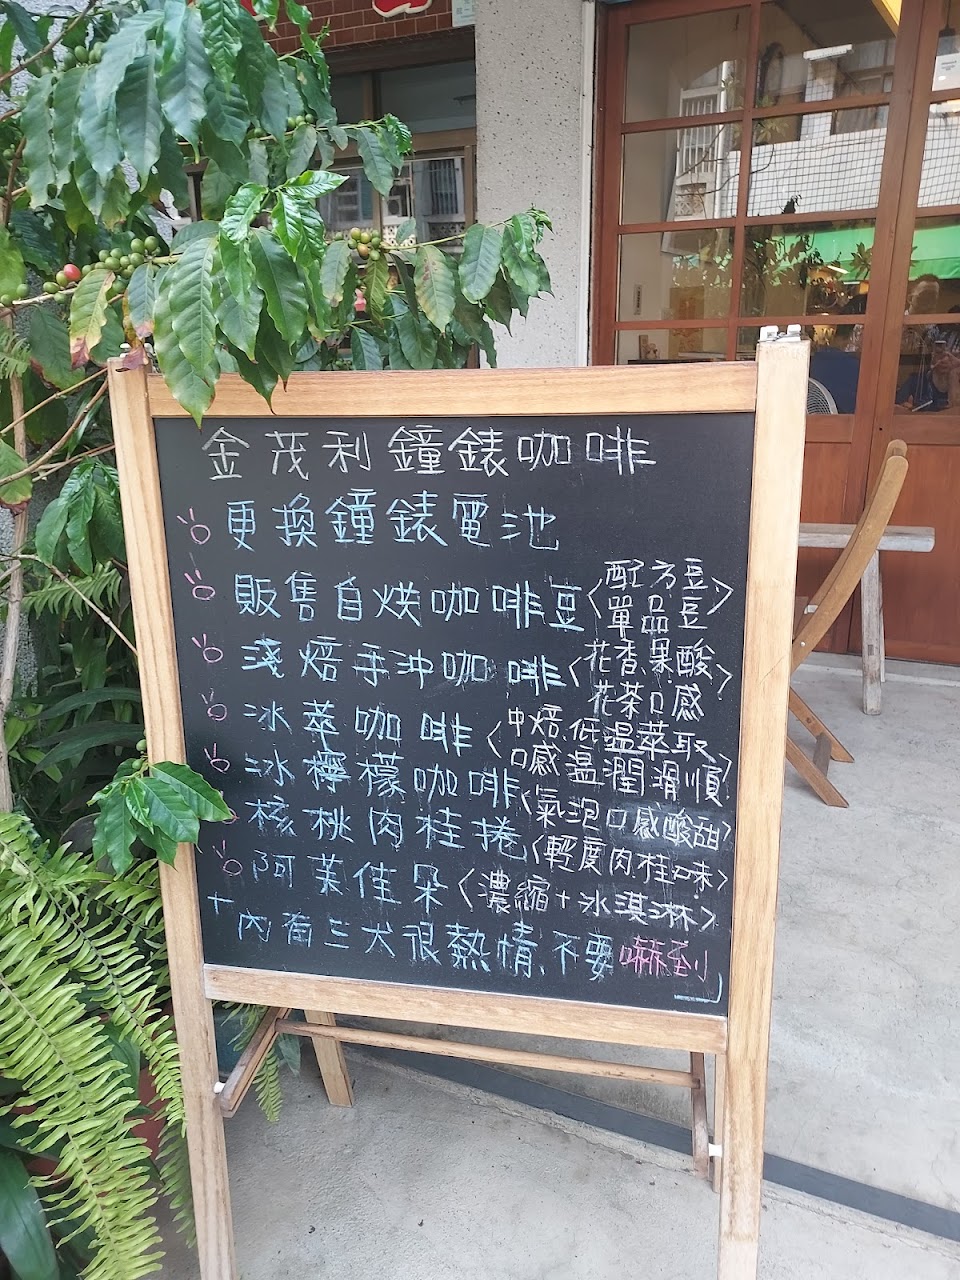 金茂利鐘錶咖啡
更換鐘錶電池
販售自烘咖啡豆<配方豆 單品豆>
淺焙手沖咖啡<花香果酸 花茶口感>
冰萃咖啡<中焙低溫萃取 口感溫潤滑順>
冰檸檬咖啡<氣泡口感酸甜>
核桃肉桂捲<輕度肉桂味>
阿芙佳朵<濃縮+冰淇淋>
+內有三犬很熱情、不要嚇到